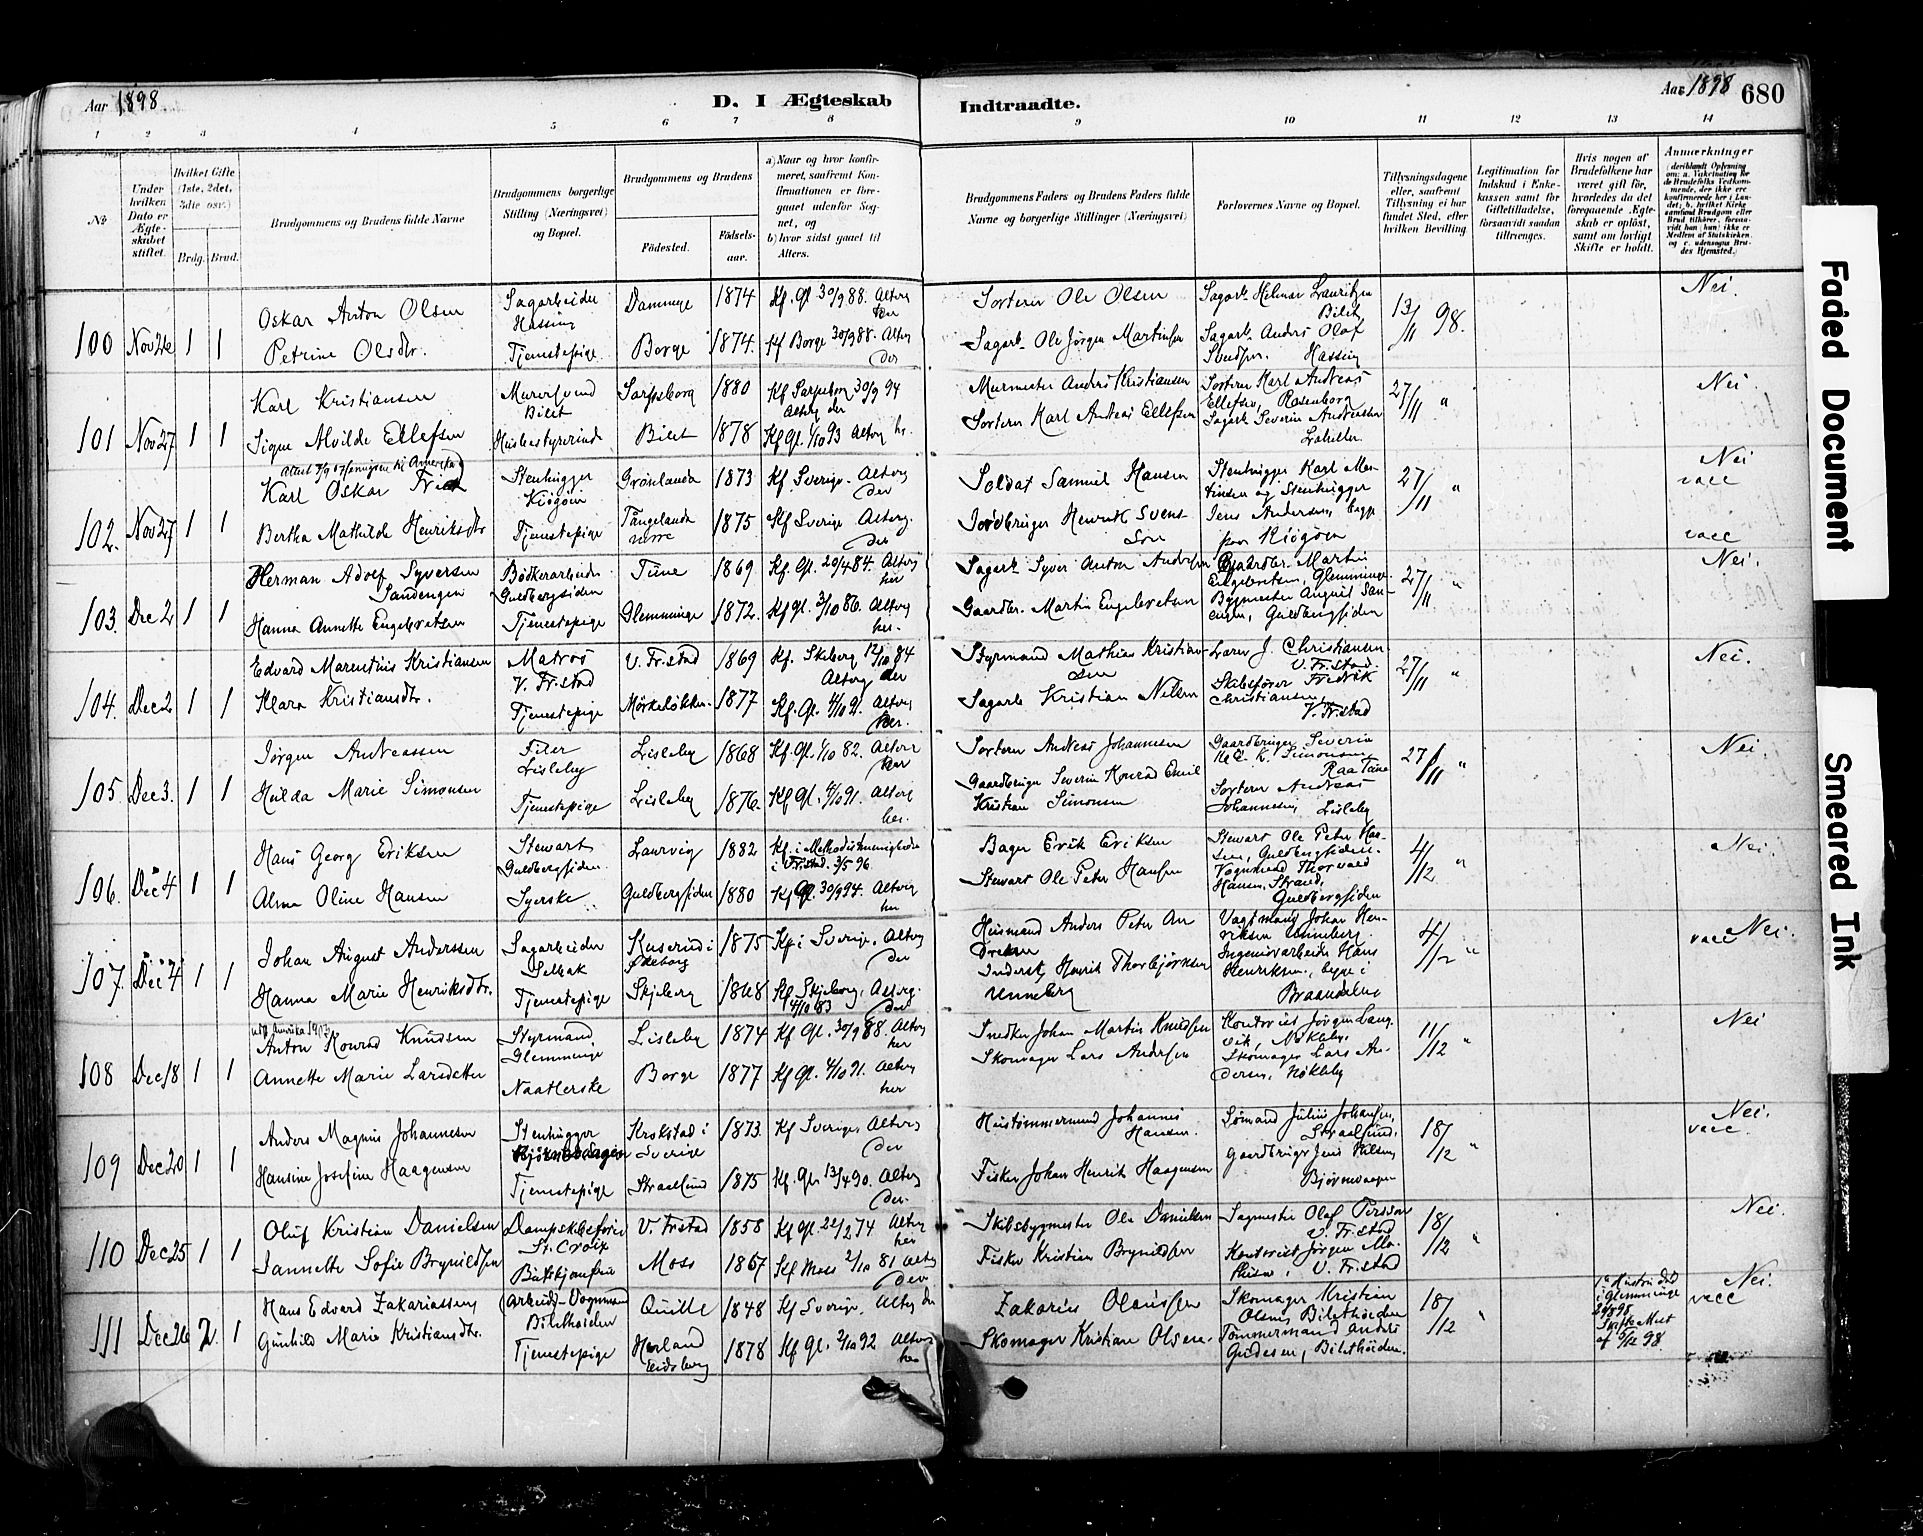 Aar 1898
D. I Ægteskab
Indtraadte.
Aar 1898 680
1 2 3 4 5 6 7 8 9 10 11 12 13 14
No
Under hvilken Dato er Ægteskabet stiftet.
Hvilket Gifte (1ste, 2det, 3die osv.)
Brdg. Brud.
Brudgommens og Brudens fulde Navne
Brudgommens borgerlige Stilling (Næringsvei) og Bopæl.
Brudgommens og Brudens
Födested.
Födselsaar.
a) Naar og hvor konfirmeret, saafremt Konfirmationen er foregaaet udenfor Sognet, og
b) hvor sidst gaaet til Alters.
Brudgommens Faders og Brudens Faders fulde Navne og borgerlige Stillinger (Næringsvei)
Forlovernes Navne og Bopæl.
Tillysningsdagene eller, saafremt Tillysning ei har fundet Sted, efter hvilken Bevilling.
Legitimation for Indskud i Enkekassen samt for Giftetilladelse, forsaavidt saadan tiltrænges.
Hvis nogen af Brudefolkene har været gift för, hvorledes da det foregaaende Ægteskab er oplöst, samt om lovligt Skifte er holdt.
Anmærkninger
100 Nov 26 1 1
Oskar Anton Olsen Sagarbeider Hassing 1874 Kf. Gl. 30/9 88. Alterg. her
Sorterer Ole Olsen
13/11 98. Nei.
Petrine Olsdtr. Tjenestepige Borge 1874. Kf Borge 30/9 88. Alterg der
Sagarb. Ole Jørgen Martinsen
Sagarb. Anders Olaf Svendsen. Hassing
101 Nov 27 1 1
Karl Kristiansen Murersvend Bilet Sarpsborg 1880 Kf Sarpsborg 30/9 94 Alterg der
Murmester Anders Kristiansen
Sorterer Karl Andreas Ellefsen, Rosenborg
27/11 " Nei.
Signe Alvilde Ellefsen Husbestyrerinde Bilet 1878 Kf Gl. 1/10 93 Alterg hr.
Sorterer Karl Andreas Ellefsen
Sagarb Severin Andersen
102. Nov 27 1 1
Karl Oskar Stenhugger Kjøgøen 1873 Kf. Sverige. Alterg der
Soldat Samuel Hansen
Stenhugger Karl Martinsen og Stenhugger Jens Andersen, begge paa Kjøgøen
27/11 " Nei vacc
Bertha Mathilde Henriksdtr Tjenestepige 1875 Kf Sverige Alterg. der
vacc
103. Dec 2 1 1
Herman Adolf Syversen Sandengen Bødkerarbeider Guldbergsiden Tune 1869 Kf. Gl. 20/4 84. Alterg her
Sagarb Syver Anton Andersen
Gaardbr. Martin Engebretsen, Glemminge.
27/11 " Nei.
Hanna Annette Engebretsen Tjenestepige Glemminge 1872. Kf Gl. 3/10 86. Alterg her.
Gaardbr. Martin Engebretsen
Bygmester August Sandengen, Guldbergsiden
104. Dec 2 1 1
Edvard Marentius Kristiansen Matros V. Fr.stad V. Fr.stad 1869 Kf. Skeberg 12/10 84 Alterg der
Styrmand Mathias Kristiansen
Lars J. Christiansen V. Fr.stad.
27/11 " Nei.
Klara Kristiansdtr. Tjenestepige 1877 Kf. Gl. 4/10 91. Alterg her.
Sagarb Kristian Nilsen
Skibsfører Fredrik Christiansen, V. Fr.stad
105. Dec 3. 1 1
Jørgen Andreassen Filer Lisleby Lisleby 1868 Kf. Gl. 1/10 82. Alterg her
Sorterer Andreas Johannesen
Gaardbruger Severin K. E. K. Simonsen
27/11 " Nei
Hulda Marie Simonsen Tjenestepige Lisleby 1876. Kf Gl. 4/10 91. Alterg her.
Gaardbruger Severin Konrad Emil Kristian Simonsen
Sorterer Andreas Johannesen, Lisleby
106. Dec 4 1 1
Hans Georg Eriksen Stewart Guldbergsiden Laurvig 1882 Kf. i Methodistmenigheden i Fr.stad. 3/5 96.
Bager Erik Eriksen
Stewart Ole Peter Hansen, Guldbergsiden.
4/12 " Nei.
Alma Oline Hansen Syerske Guldbergsiden 1880 Kf Gl. 30/9 94. Alterg her
Stewart Ole Peter Hansen
Vognmand Thorvald Hansen, Strand, Guldbergsiden
107. Dec 4 1 1
Johan August Anderssen Sagarbeider Selbak 1875 Kf i Sverige. Alterg der
Husmand Anders Peter Andresen
Vagtmand Johan Henriksen Unneberg.
4/12 " vacc Nei.
Hanna Marie Henriksdtr. Tjenestepige Skjeberg 1868 Kf Skjeberg. 4/10 83 Alterg. der
Inderst Henrik Thorbjørnsen Unneberg
Ingeniørarbeider Hans Henriksen, begge i
108 Dec 18 1 1
Anton Konrad Knudsen Styrmand Glemminge Lisleby 1874 Kf Gl. 30/9 88. Alterg her
Snedker Johan Martin Knudsen
Kontorist Jørgen Langvik, Nøkleby.
11/12 " Nei
Annette Marie Larsdatter Naatlerske Borge 1877 Kf Gl. 4/10 91. Alterg her
Skomager Lars Andersen
Skomager Lars Andersen, Nøkleby
109 Dec 20 1 1
Anders Magnus Johannesen Stenhugger Krokstad i Sverige 1873. Kf Sverige, Alterg der
Hustømmermand Johannes Hansen.
Sømand Julius Johansen, Straalsund.
18/12 " Nei. vacc.
Hansine Josefine Haagensen Tjenestepige Straalsund 1875 Kf. Gl. 13/4 90. Alterg der.
Fisker Johan Henrik Haagensen
Gaardbruger Jens Nilsen, Bjørnevaagen
110 Dec 25 1 1
Oluf Kristian Danielsen Dampskibsfører St. Croix V. Fr.stad 1858 Kf Gl. 22/2 74 Alterg her
Skibsbygmester Ole Danielsen
Sagmester Olaf Persson V. Fr.stad
18/12 " Nei.
Jannette Sofie Brynildsen Moss 1867 Kf Moss 2/10 81 Alterg der
Fisker Kristian Brynildsen
Kontorist Jørgen Mathisen, V. Fr.stad
111 Dec 26 2. 1
Hans Edvard Zakariassen Arbeider-Vognmand Bilethøiden Quille 1848 Kf Sverige, Alterg der
Zakarias Olaussen
Skomager Kristian Olsen, Bilethøiden
18/12 " Nei. vacc
Gunhild Marie Kristiansdtr. Tjenestepige Hærland Eidsberg 1878 Kf Gl. 2/10 92 Alterg her
Skomager Kristian Olsen.
Tømmermand Anders Gudesen, Bilethøiden.
1ste Hustru død i Glemminge
Skifte Attest af 98.
Faded Document
Smeared Ink